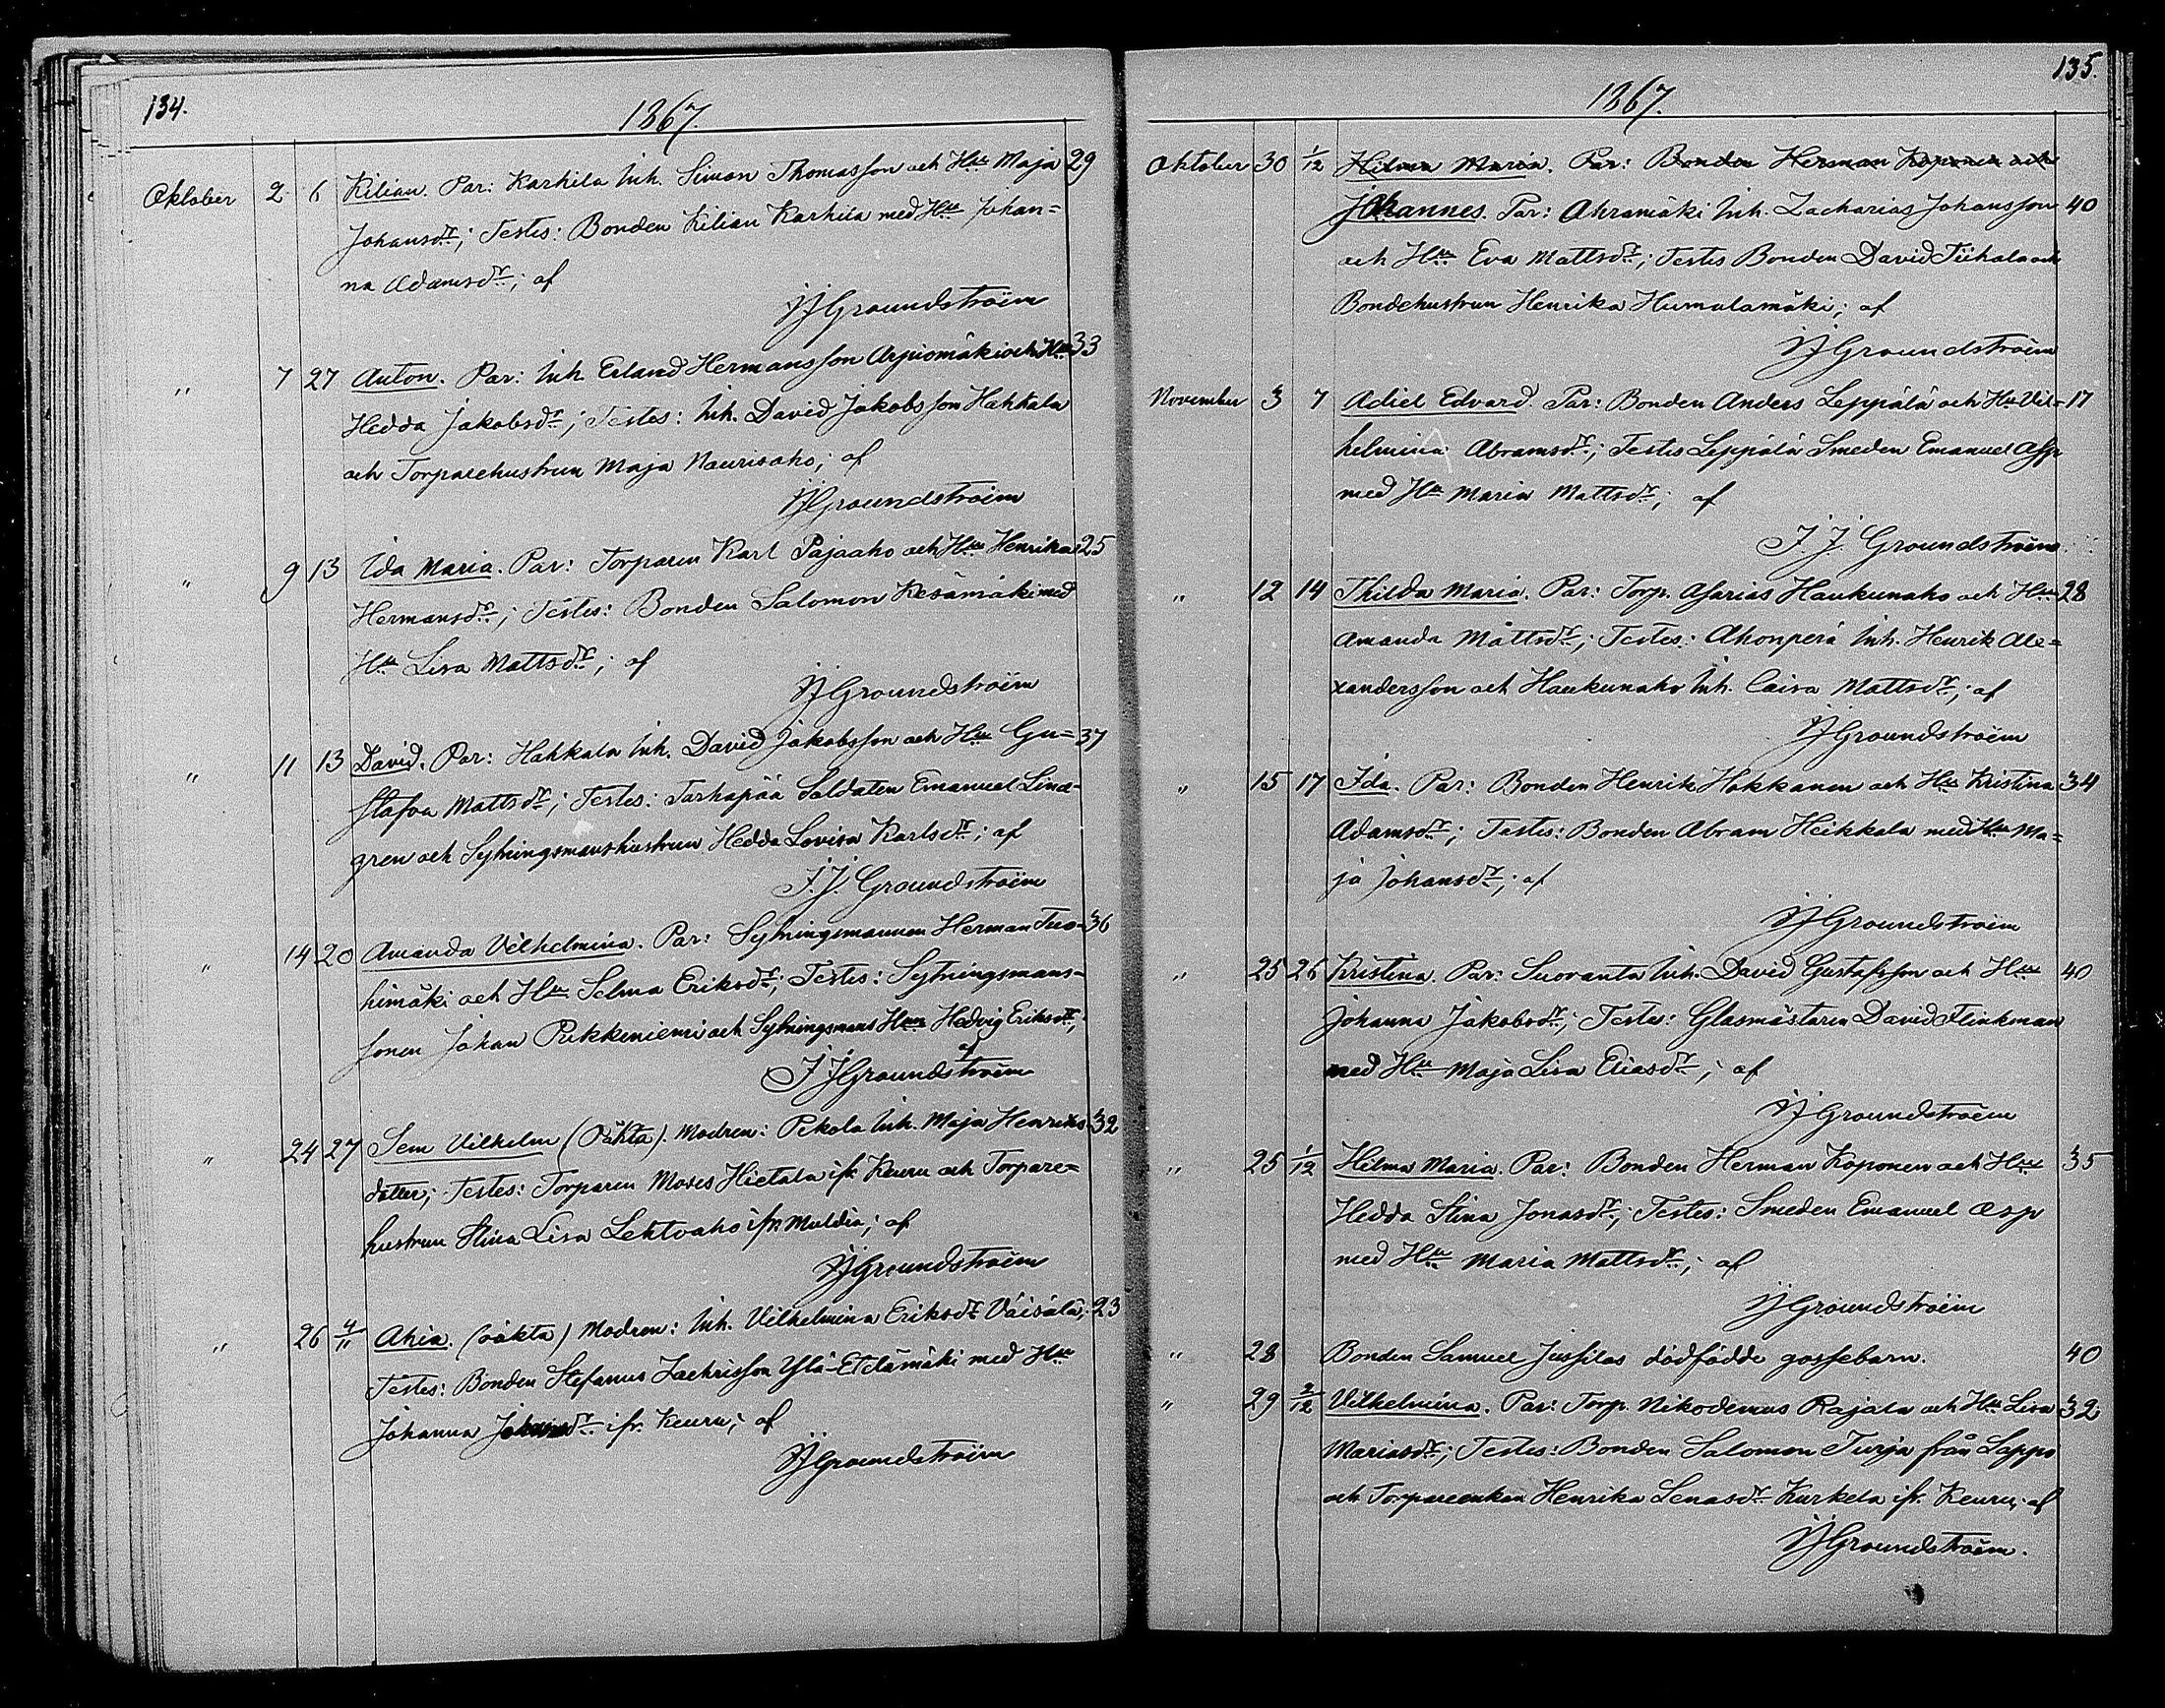 134.
1867.
Oktober 2 6 Kilian. Par: Karhila Inh. Simon Thomasson och Hu Maja 29
Johansdr; Testes: Bonden Kilian Karhila med Hu Johan=
na Adamsdr; af
JJGroundstroëm
" 7 27 Anton. Par: Inh. Erland Hermansson Arpiomäki och Hu 33
Hedda Jakobsdr; Testes: Inh. David Jakobsson Hahkala
och Torparehustrun Maja Naurisaho; af
JJGroundstroëm
" 9 13 Ida Maria. Par: Torparen Karl Pajaaho och Hu Henrika 25
Hermansdr; Testes: Bonden Salomon Kesämäki med
Hu Lisa Mattsdr; af
JJGroundstroëm
" 11 13 David. Par: Hahkala Inh. David Jakobsson och Hu Gu= 37
stafva Mattsdr; Testes: Tarhapää Soldaten Emanuel Lind-
gren och Sytningsmanshustrun Hedda Lovisa Karlsdr; af
J.J. Groundstroëm
" 14 20 Amanda Vilhelmina. Par: Sytningsmannen Herman Tuo= 36
himäki och Hu Selma Eriksdr; Testes: Sytningsmans=
sonen Johan Pukkiniemi och Sytningsmans Hun Hedvig Eriksdr;
af
J JGroundstroëm
" 24 27 Sem Vilhelm (Oäkta). Modren: Pekola Inh. Maja Henriks 32
dotter; Testes: Torparen Moses Hietala ifr Keuru och Torpare=
hustrun Stina Lisa Lehtoaho ifrn Multia; af
JJGroundstroëm
" 26 4/11 Ahia. (oäkta) Modren: Inh. Vilhelmina Eriksdr Väisälä; 23
Testes: Bonden Stefanus Zachrisson Ylä-Etelämäki med Hu
Johanna Johansdr ifr. Keuru; af
JJGroundstroëm
135.
1867.
Oktober 30 1/12 Hilma Maria. Par: Bonden Herman Koponen och
Johannes. Par: Ahramäki Inh. Zacharias Johansson 40
och Hu Eva Mattsdr; Testes Bonden David Tiihala och
Bondehustrun Henrika Humalamäki; af
JJGroundstroëm
November 3 7 Adiel Edvard. Par: Bonden Anders Leppälä och Hu Vil= 17
helmina Abramsdr; Testes Leppälä Smeden Emanuel Asp
med Hu Maria Mattsdr; af
J.J. Groundstroëm.
" 12 14 Thilda Maria. Par: Torp. Asarias Haukunaho och Hu 28
Amanda Mattsdr; Testes: Ahonperä Inh. Henrik Ale=
xandersson och Haukunaho Inh. Caisa Mattsdr; af
JJGroundstroëm
" 15 17 Ida. Par: Bonden Henrik Hokkanen och Hu Kristina 34
Adamsdr; Testes: Bonden Abram Heikkala med Hu Ma=
ja Johansdr; af
JJGroundstroëm
" 25 26 Kristina. Par: Suoranta Inh. David Gustafsson och Hu 40
Johanna Jakobsdr; Testes: Glasmästaren David Flinkman
med Hu Maja Lisa Eliasdr; af
JJGroundstroëm
" 25 1/12 Hilma Maria. Par: Bonden Herman Koponen och Hu 35
Hedda Stina Jonasdr; Testes: Smeden Emanuel Asp
med Hu Maria Mattsdr; af
JJGroundstroëm
" 28 Bonden Samuel Jussilas dödfödde gossebarn. 40
" 29 2/12 Vilhelmina. Par: Torp. Nikodemus Rajala och Hu Lisa 32
Mariasdr; Testes: Bonden Salomon Turja från Lappo
och Torpareenkan Henrika Lenasdr Kurkela ifr. Keuru; af
JJGroundstroëm.